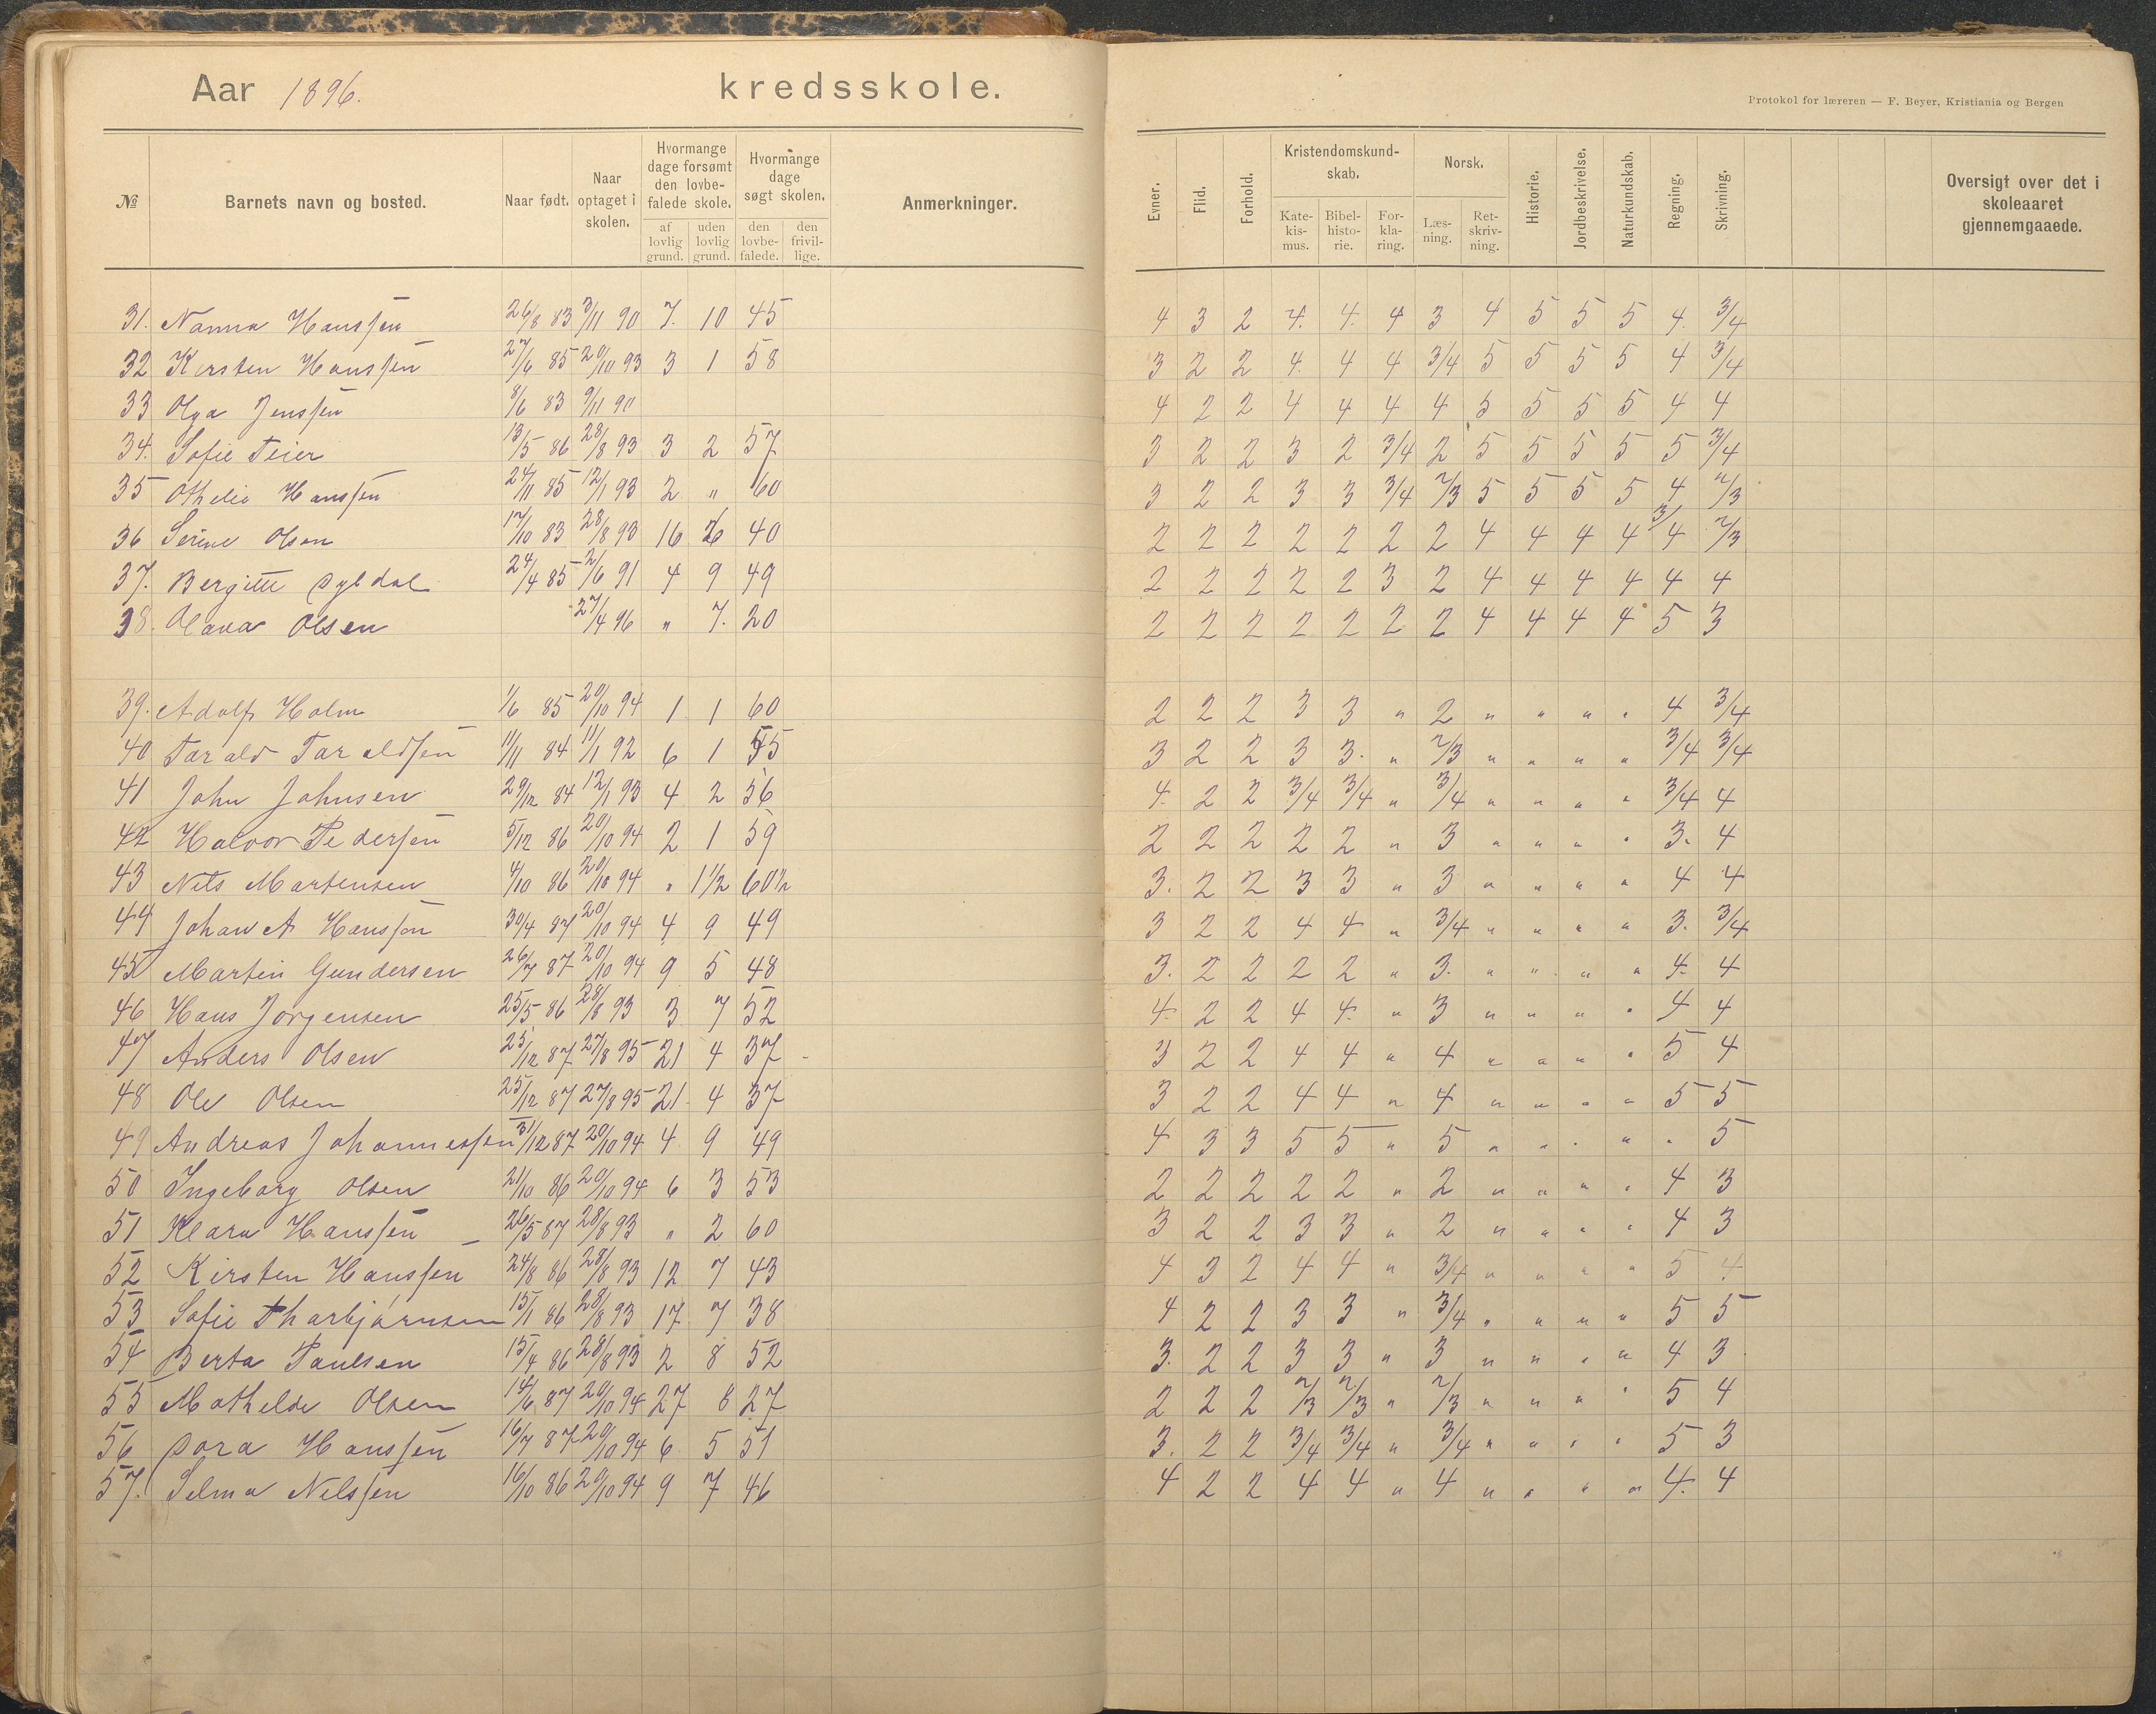 Aar 1896. kredsskole.
Protokol for læreren — F. Beyer, Kristiania og Bergen
№ Barnets navn og bosted. Naar født. Naar optaget i skolen. Hvormange dage forsømt den lovbefalede skole. af lovlig grund. uden lovlig grund. Hvormange dage søgt skolen. den lovbefalede. den frivillige. Anmerkninger. Evner. Flid. Forhold. Kristendomskundskab. Katekismus. Bibelhistorie. Forklaring. Norsk. Læsning. Retskrivning. Historie. Jordbeskrivelse. Naturkundskab. Regning. Skrivning. Oversigt over det i skoleaaret gjennemgaaede.
31. Nanna Hanssen 26/8 83 3/11 90 7. 10 45 4 3 2 4. 4. 4 3 4 5 5 5 4. 3/4
32 Kirsten Hanssen 27/6 85 20/10 93 3 1 58 3 2 2 4. 4 4 3/4 5 5 5 5 4 3/4
33 Olga Jenssen 8/6 83 9/11 90 4 2 2 4 4 4 4 5 5 5 5 4 4
34. Sofie Teier 13/5 86 28/8 93 3 2 57 3 2 2 3 2 3/4 2 5 5 5 5 5 3/4
35 Othelie Hanssen 24/11 85 12/1 93 2 " 60 3 2 2 3 3 3/4 2/3 5 5 5 5 4 2/3
36 Serine Olsen 17/10 83 28/8 93 16 6 40 2 2 2 2 2 2 2 4 4 4 4 3/4 2/3
37. Bergitte Dybdal 24/4 85 2/6 91 4 9 49 2 2 2 2 2 3 2 4 4 4 4 4 4
38. Olava Olsen 27/4 96 " 7. 20 2 2 2 2 2 2 2 4 4 4 4 5 3
39. Adolf Holm 1/6 85 20/10 94 1 1 60 2 2 2 3 3 " 2 " " " " 4 3/4
40 Tarald Taraldsen 11/11 84 11/1 92 6 1 55 3 2 2 3 3. " 2/3 " " " " 3/4 3/4
41 John Johnsen 29/12 84 12/1 93 4 2 56 4. 2 2 3/4 3/4 " 3/4 " " " " 3/4 4
42 Halvor Pedersen 5/12 86 20/10 94 2 1 59 2 2 2 2 2 " 3 " " " " 3. 4
43 Nils Martensen 4/10 86 20/10 94 " 1 1/2 60 1/2 3. 2 2 3 3 " 3 " " " " 4 4
44 Johan A Hanssen 30/4 87 20/10 94 4 9 49 3 2 2 4 4 " 3/4 " " " " 3. 3/4
45 Martin Gundersen 26/7 87 20/10 94 9 5 48 3. 2 2 2 2 " 3. " " " " 4. 4
46 Hans Jørgensen 25/5 86 28/8 93 3 7 52 4. 2 2 4 4. " 3 " " " " 4 4
47 Anders Olsen 25/12 87 27/8 95 21 4 37 3 2 2 4 4 " 4 " " " " 5 4
48 Ole Olsen 25/12 87 27/8 95 21 4 37 3 2 2 4 4 " 4 " " " " 5 5
49 Andreas Johannessen 31/12 87 20/10 94 4 9 49 4 3 3 5 5 " 5 " " " " " 5
50 Ingeborg Olsen 21/10 86 20/10 94 6 3 53 2 2 2 2 2 " 2 " " " " 4 3
51 Klara Hanssen 26/5 87 28/8 93 " 2 60 3 2 2 3 3 " 2 " " " " 4 3
52 Kirsten Hanssen 24/8 86 28/8 93 12 7 43 4 3 2 4 4 " 3/4 " " " " 5 4
53 Sofie Thorbjørnsen 15/1 86 28/8 93 17 7 38 4 2 2 3 3 " 3/4 " " " " 5 5
54 Berta Paulsen 15/4 86 28/8 93 2 8 52 3. 2 2 3 3 " 3 " " " " 4 3
55 Mathelde Olsen 14/6 87 20/10 94 27 8 27 2 2 2 2/3 2/3 " 2/3 " " " " 5 4
56 Dora Hanssen 16/7 87 20/10 94 6 5 51 3. 2 2 3/4 3/4 " 3/4 " " " " 5 3
57. Selma Nilssen 16/10 86 20/10 94 9 7 46 4 2 2 4 4 " 4 " " " " 4. 4